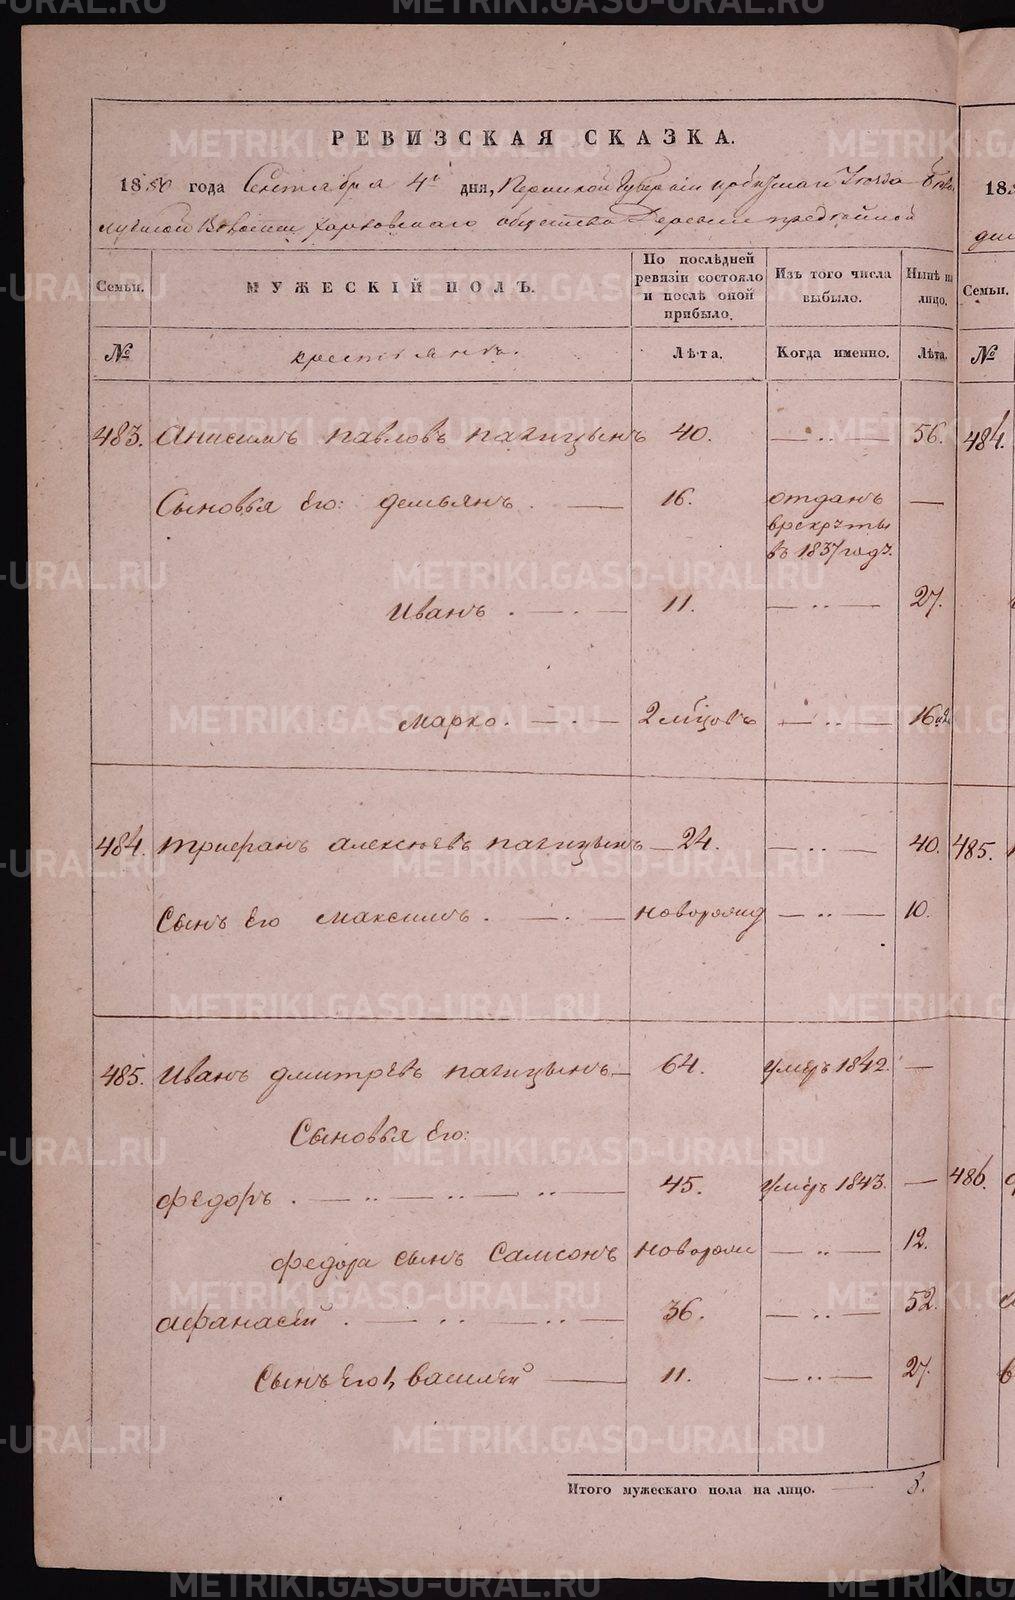 РЕВИЗСКАЯ СКАЗКА.
1850 года Сентября 4го дня, Пермской Губернии
Волости Харловскаго общества Деревни
Семьи. МУЖЕСКІЙ ПОЛЪ. По послѣдней ревизіи состояло и послѣ оной прибыло. Изъ того числа выбыло. Нынѣ на лицо. Семьи.
№ крестьянъ. Лѣта. Когда именно. Лѣта. №
483. Анисимъ Павловъ 40. — .. — 56. 484.
Сыновья Его: Демьянъ. — 16. отданъ —
врекруты
въ 1837 годъ.
Иванъ . — . — 11. — .. — 27.
Марко. — . — 2 мѣсцовъ — .. — 16
484. Трифанъ Алексѣевъ — 24. — .. — 40. 485.
Сынъ Его Максимъ. — . — новорожд — .. — 10.
485. Иванъ Дмитрѣевъ — 64. умеръ 1842. —
Сыновья Его:
Федоръ . — .. — .. — .. — 45. умеръ 1843. — 486.
Федора сынъ Самсонъ новорож — .. — 12.
Афанасѣй . — .. — .. — 36. — .. — 52.
Сынъ Его 1, Василѣй — 11. — .. — 27.
Итого мужескаго пола на лицо. — 8.
METRIKI.GASO-URAL.RU